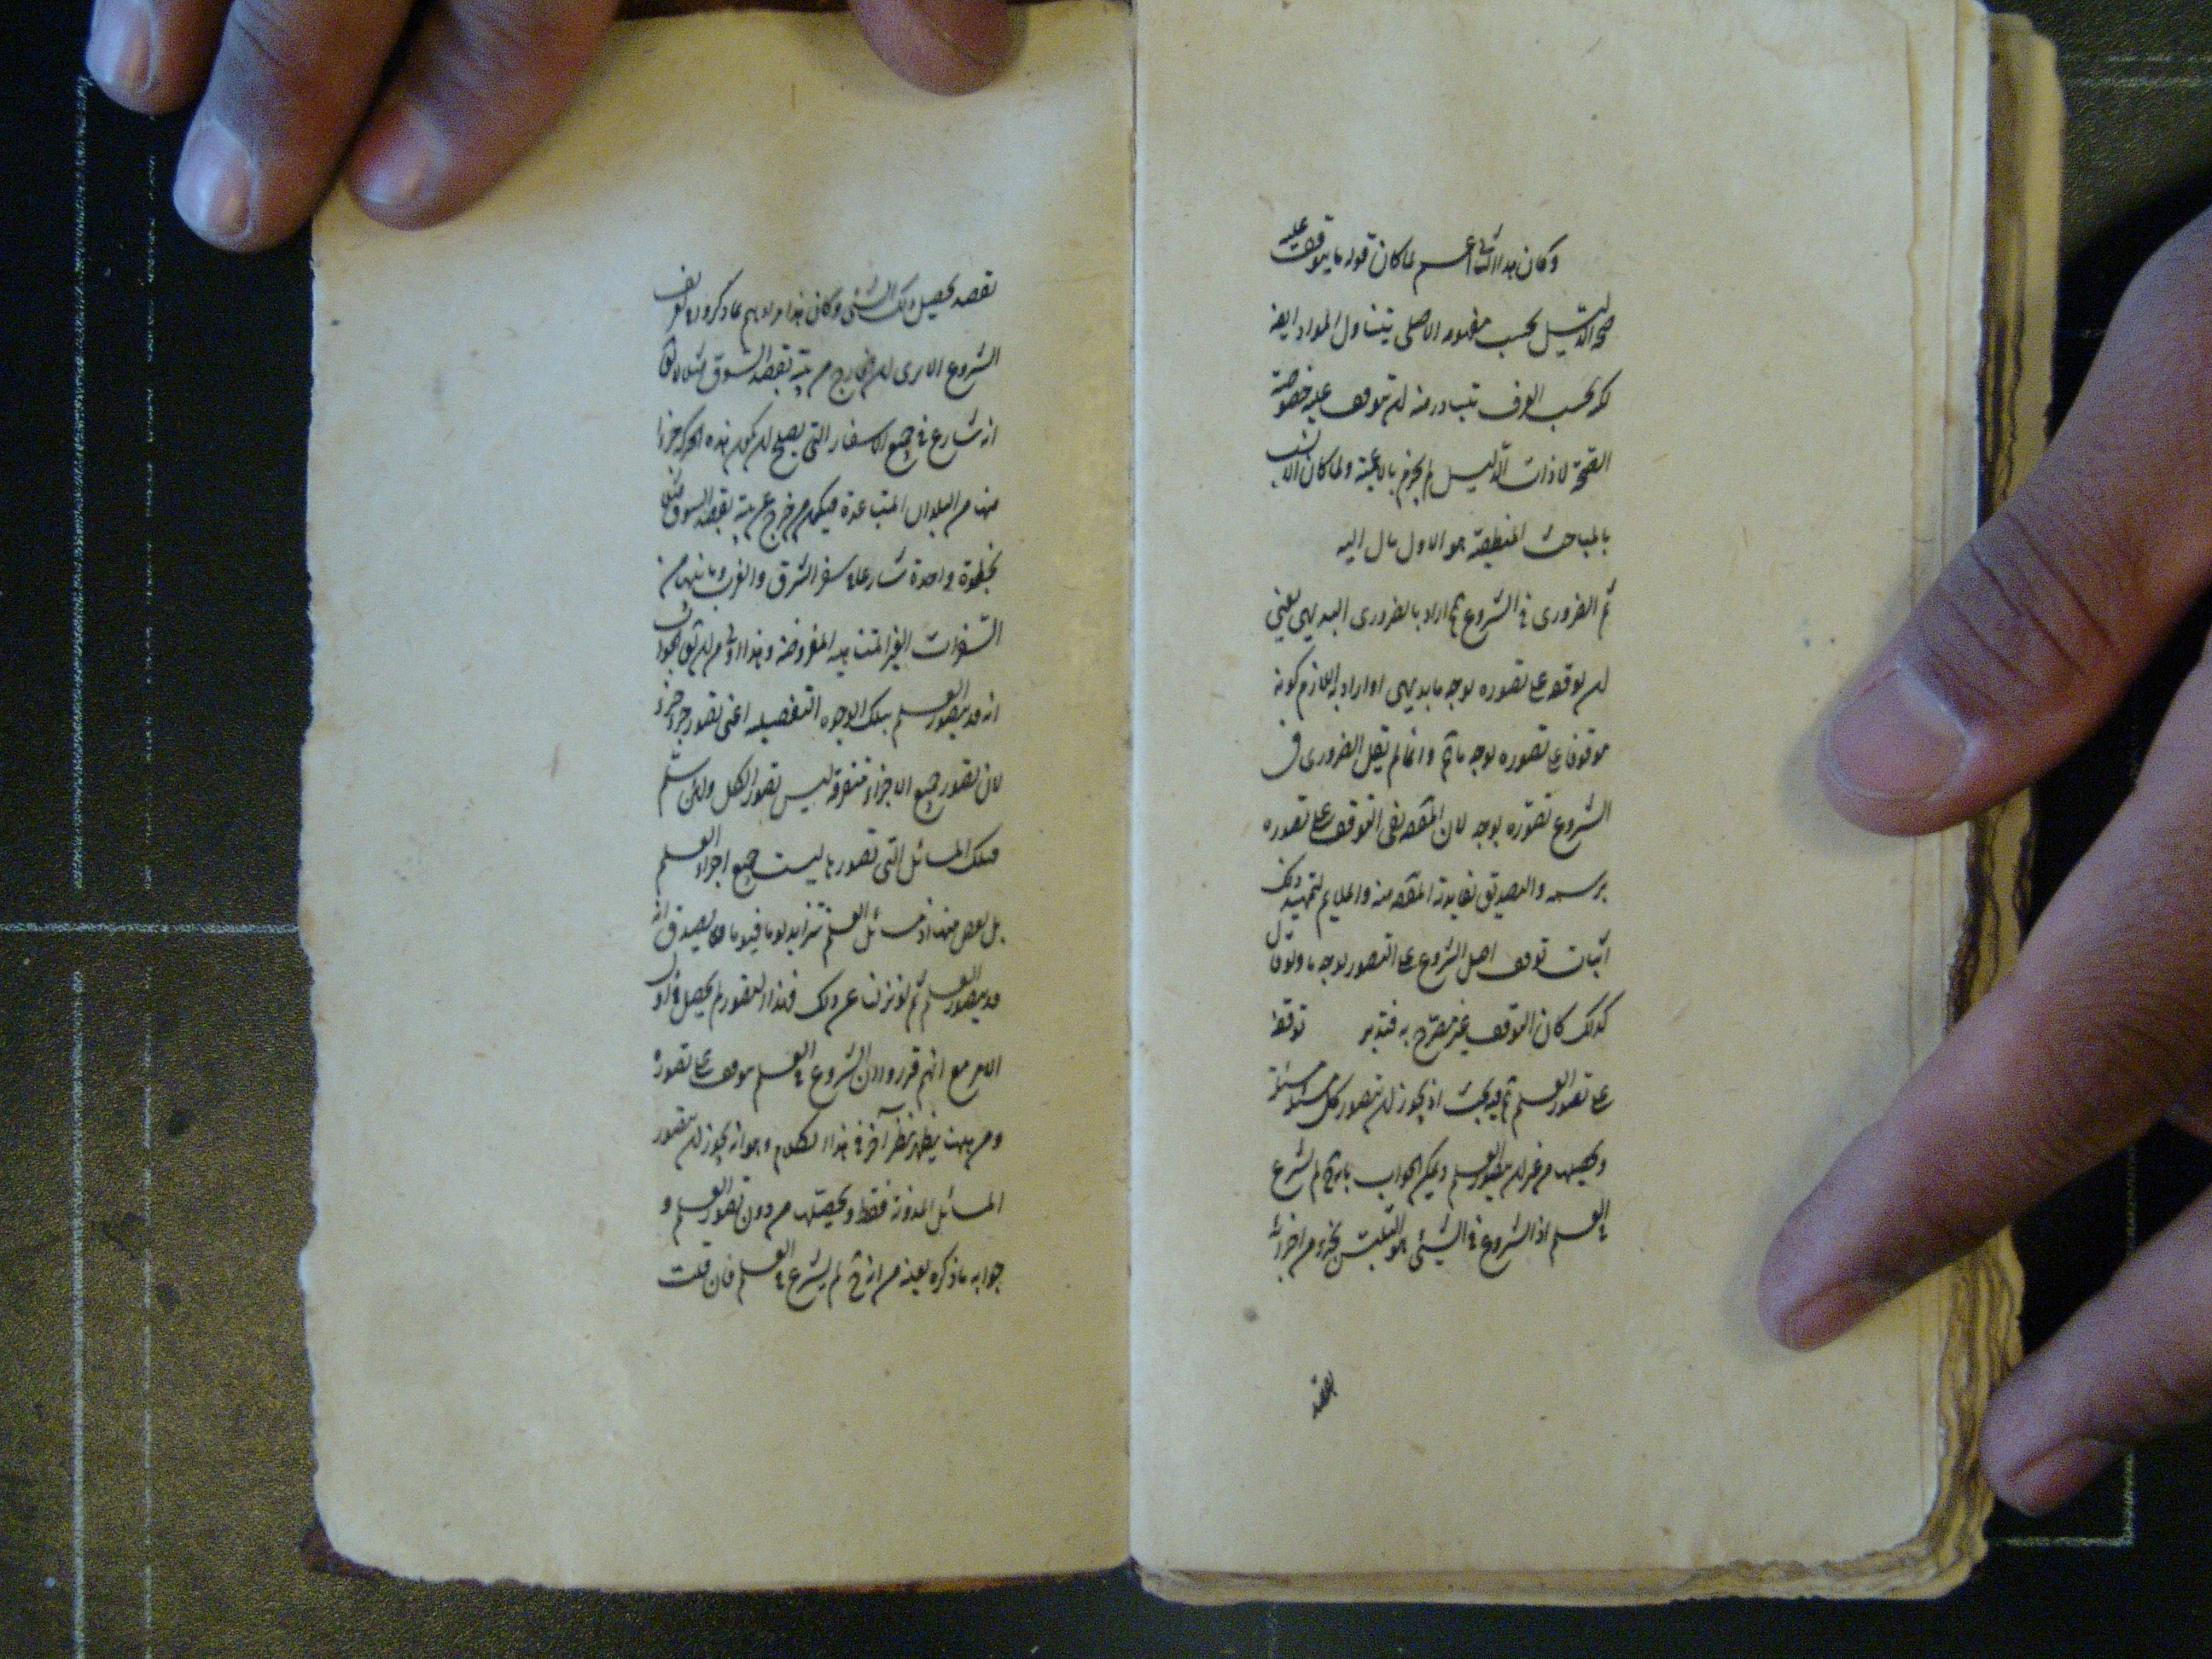 وكان هذا الثاني اعم لما كان قوله ما يتوقف عليه
صحة الدليل بحسب مفهومه الاصلي يتناول المواد ايضا
لكن بحسب العرف يتبادر منه ان توقف عليه خصوصية
الصحة لا ذات الدليل لم يجزم بالاعمية ولما كان الانسب
بالمباحث المنطقية هو الاول مال اليه
ثم الضروري في الشروع اراد بالضروري البديهي يعني
ان توقفه على تصوره بوجه ما بديهي او اراد به اللازم كونه
موقوفا على تصوره بوجه ما وانما لم يقل الضروري في
الشروع تصوره بوجه لان المقصود نفي التوقف على تصوره
برسمه والتصديق بفايدته المقصودة منه والملايم لتمهيد ذلك
اثبات توقف اصل الشروع على التصور بوجه ما ولو قال
كذلك كان التوقف غير مصرح به فتدبر توقفه
على تصور العلم فيه بحث اذ يجوز ان يتصور كل مسئلة مسئلة
ويحصلها من غير ان يتصور العلم ويمكن الجواب بانه لم يشرع
في العلم اذ الشروع في الشيء هو التلبس بجزء من اجزائه
بقصد
بقصد تحصيل ذلك الشئ وكان هذا مرادهم مما ذكروا في تعريف
الشروع الا يرى ان الخارج من بيته بقصد السوق مثلا لا يقال
انه شارع في جميع الاسفار التي يصلح ان يكون هذه الحركة جزءا
منها من البلدان المتباعدة فيكون من خرج عن بيته بقصد السوق مثلا
بخطوة واحدة شارعا في سفر الشرق والغرب وما بينهما من
السفرات الغير المتناهية المفروضة وهذا اولى من ان يقال في الجواب
انه قد يتصور العلم بتلك الوجوه التفصيلية اعني تصور جزء جزء
لان تصور جميع الاجزاء متفرقة ليس تصور الكل ولئن سلم
فتلك المسائل التي تصورها ليست جميع اجزاء العلم
بل بعض منها اذ مسائل العلم تتزايد يوما فيوما فلا يصدق انه
قد يتصور العلم ثم لو نزلت عن ذلك فهذا التصور لم يحصل في اول
الامر مع انهم قرروا ان الشروع في العلم موقوف على تصوره
ومن ههنا يظهر نظر آخر في هذا الكلام وهو انه يجوز ان يتصور
المسائل المدونة فقط ويحصلها من دون تصور العلم و
جوابه ما ذكره بعينه من انه لم يشرع في العلم فان قلت